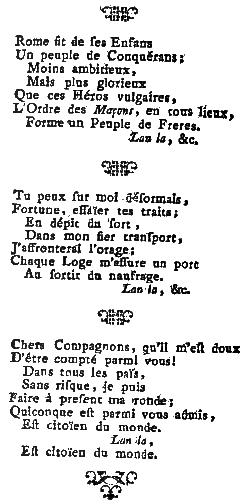 Rome fit de ſes Enfans
Un peuple de Conquérans;
Moins ambitieux,
Mais plus glorieux
Que ces Héros vulgaires,
L'Ordre des Maçons, en tous lieux,
Forme un Peuple de Freres.
Lan la, &c.
Tu peux ſur moi déſormais,
Fortune, eſſaïer tes traits;
En dépit du ſort,
Dans mon fier tranſport,
J'affronterai l'orage;
Chaque Loge m'eſſure un port
Au ſortir du naufrage.
Lan la, &c.
Chers Compagnons, qu'il m'eſt doux
D'être compté parmi vous!
Dans tous les païs,
Sans riſque, je puis
Faire à preſent ma ronde;
Quiconque eſt parmi vous admis,
Eſt citoïen du monde.
Lan la,
Eſt citoïen du monde.